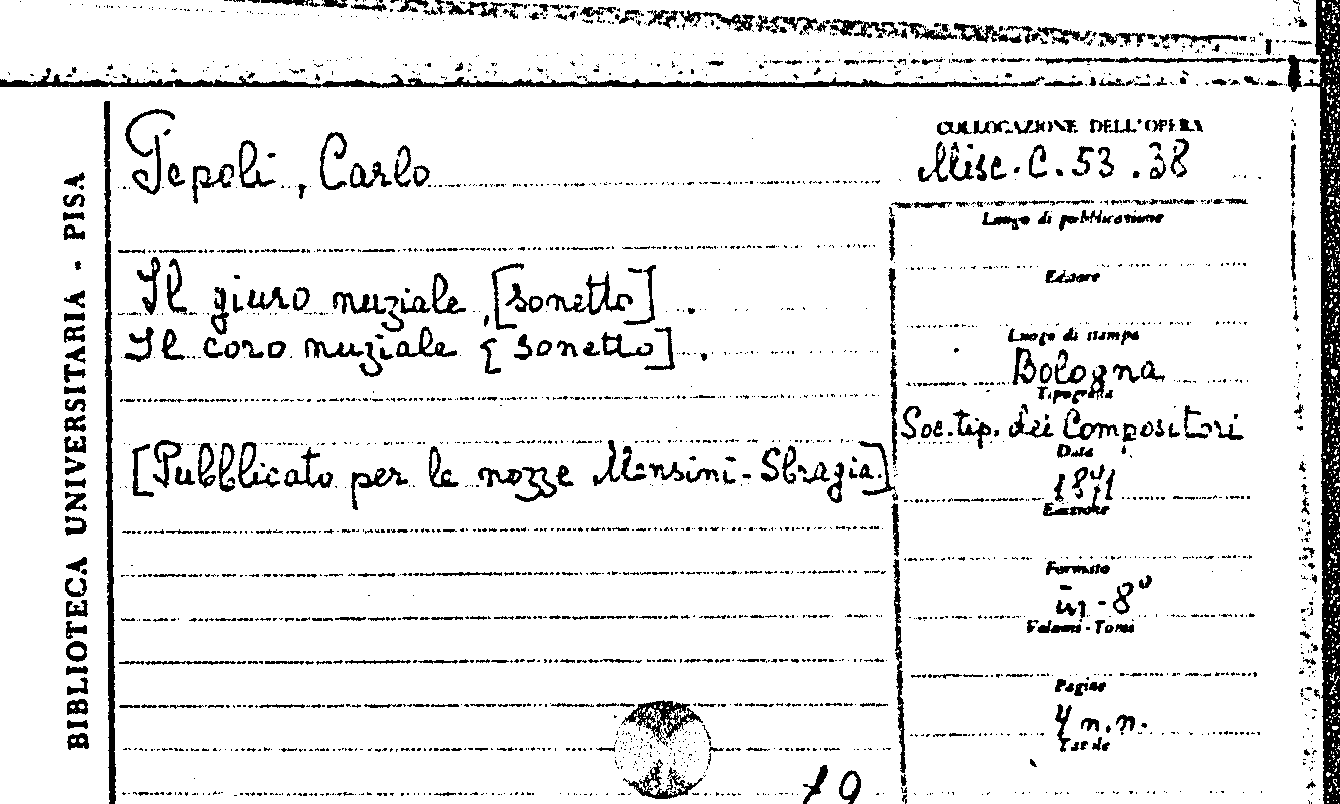 BIBLIOTECA UNIVERSITARIA - PISA
Pepoli, Carlo
Il giuro nuziale, [sonetto].
Il coro nuziale [sonetto].
[Pubblicato per le nozze Mensini-Sbragia.]
19
COLLOCAZIONE DELL'OPERA
Misc. C. 53 .38
Luogo di pubblicazione
Editore
Luogo di stampa
Bologna
Tipografia
Soc. tip. dei Compositori
Data
1871
Edizione
Formato
in-8°
Volumi - Tomi
Pagine
4 n.n.
Tavole